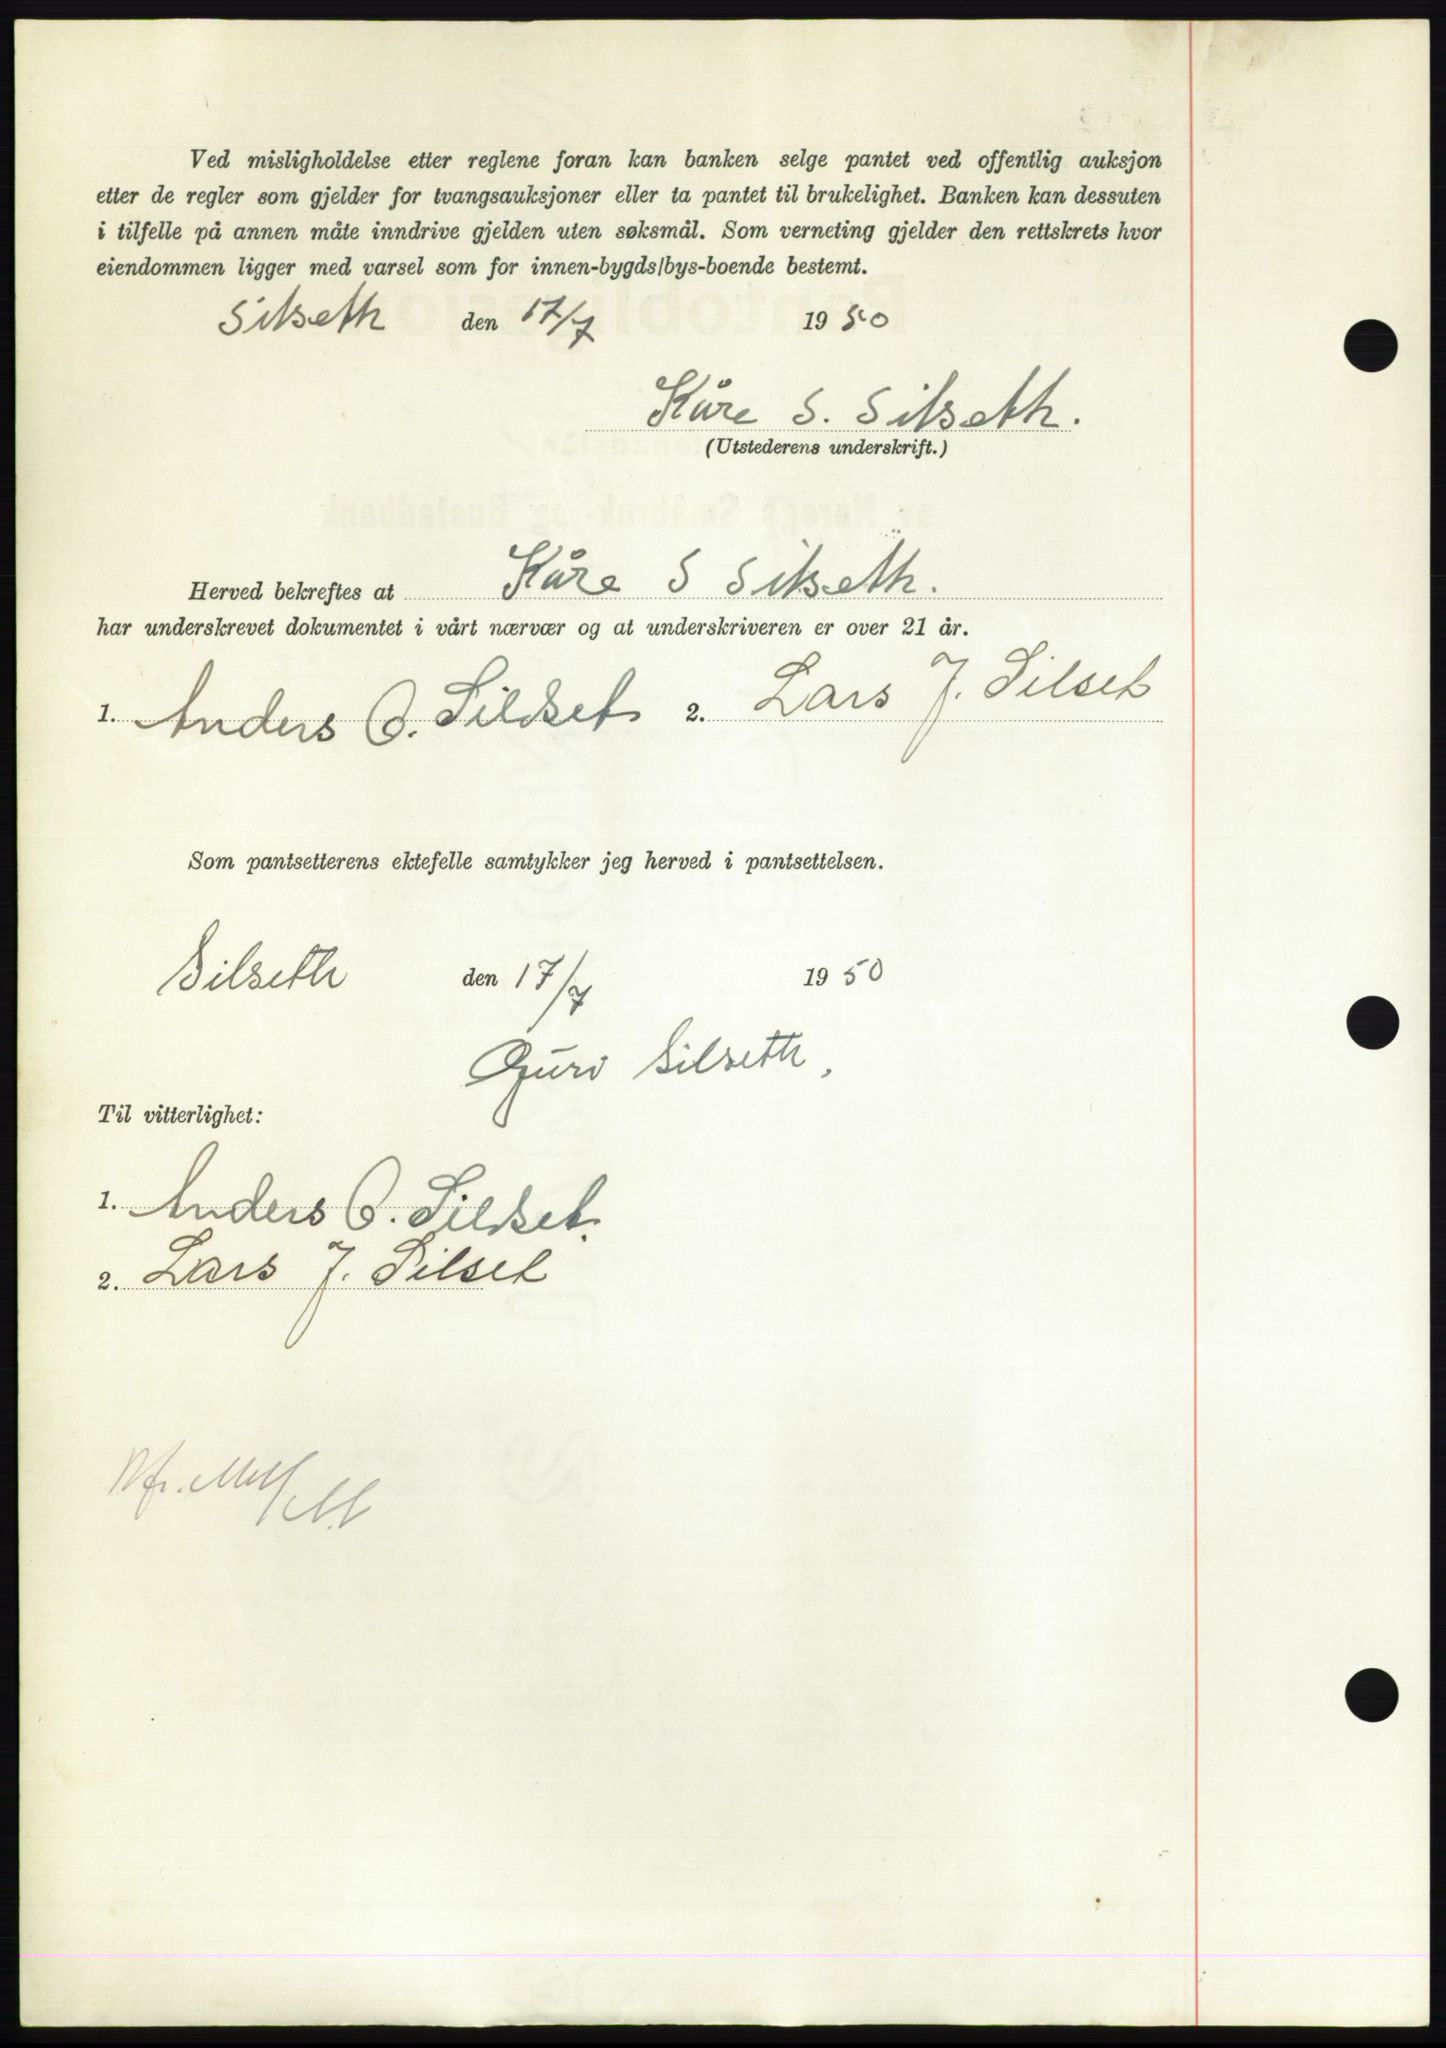 Ved misligholdelse etter reglene foran kan banken selge pantet ved offentlig auksjon
etter de regler som gjelder for tvangsauksjoner eller ta pantet til brukelighet. Banken kan dessuten
i tilfelle på annen måte inndrive gjelden uten søksmål. Som verneting gjelder den rettskrets hvor
eiendommen ligger med varsel som for innen-bygds/bys-boende bestemt.
Silseth den 17/7 1950
Kåre S. Silseth.
(Utstederens underskrift.)
Herved bekreftes at Kåre S Silseth.
har underskrevet dokumentet i vårt nærvær og at underskriveren er over 21 år.
1. Anders O. Sildset 2. Lars J. Silset
Som pantsetterens ektefelle samtykker jeg herved i pantsettelsen.
Silseth den 17/7 1950
Guri Silseth.
Til vitterlighet:
1. Anders O. Sildset.
2. Lars J. Silset